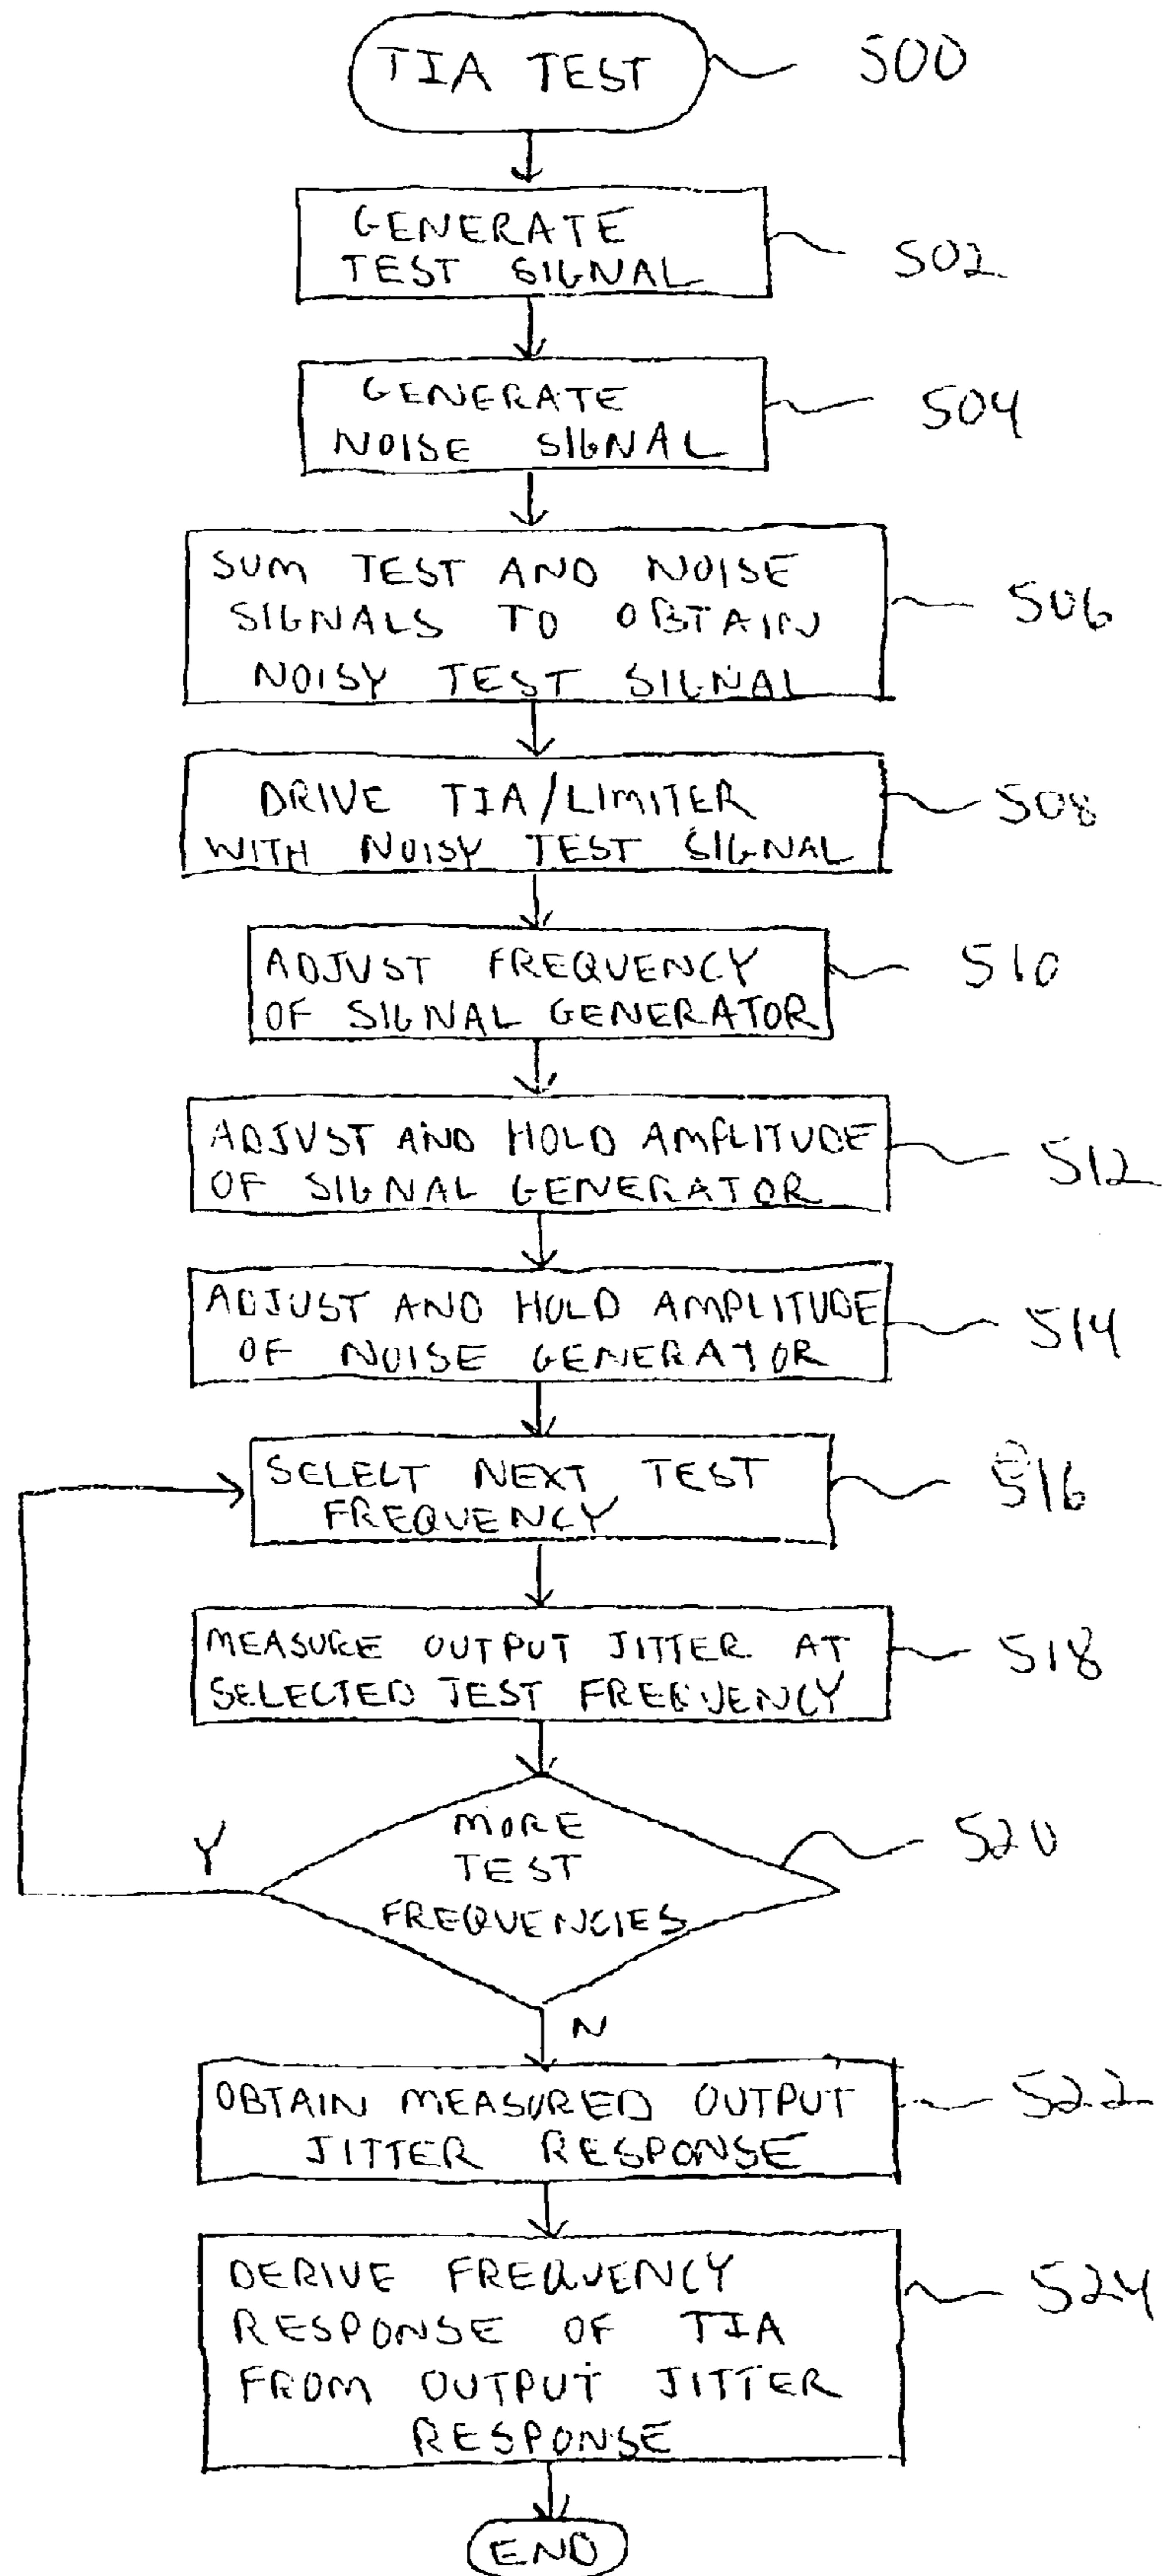 TIA TEST 500
GENERATE
TEST SIGNAL 502
GENERATE
NOISE SIGNAL 504
SUM TEST AND NOISE
SIGNALS TO OBTAIN 506
NOISY TEST SIGNAL
DRIVE TIA/LIMITER 508
WITH NOISY TEST SIGNAL
ADJUST FREQUENCY 510
OF SIGNAL GENERATOR
ADJUST AND HOLD AMPLITUDE
OF SIGNAL GENERATOR 512
ADJUST AND HOLD AMPLITUDE
OF NOISE GENERATOR 514
SELECT NEXT TEST 516
FREQUENCY
MEASURE OUTPUT JITTER AT 518
SELECTED TEST FREQUENCY
MORE
TEST
FREQUENCIES
Y
520
N
OBTAIN MEASURED OUTPUT 522
JITTER RESPONSE
DERIVE FREQUENCY 524
RESPONSE OF TIA
FROM OUTPUT JITTER
RESPONSE
END